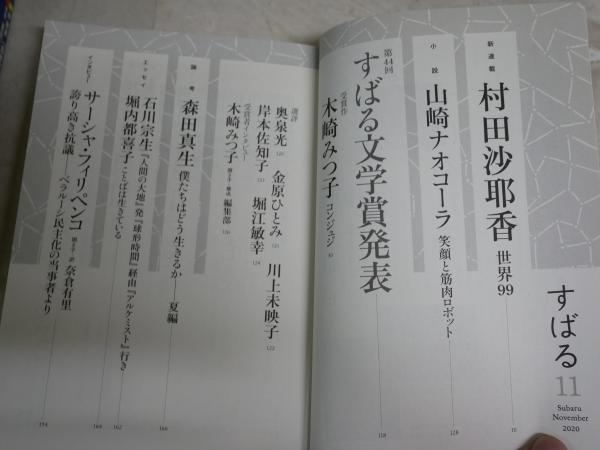 すばる
11
Subaru
November
2020
新連載
村田沙耶香 世界99
10
小説
山崎ナオコーラ 笑顔と筋肉ロボット
128
第44回
すばる文学賞発表
118
受賞作
木崎みつ子 コンジュジ
選評
奥泉光
金原ひとみ
川上未映子
122
岸本佐知子
堀江敏幸
124
受賞者インタビュー
木崎みつ子
編集部
126
論考
森田真生 僕たちはどう生きるか──夏編
166
エッセイ
石川宗生 『人間の大地』発『球形時間』経由『アルケミスト』行き
162
堀内都喜子 ことばは生きている
164
インタビュー
サーシャ・フィリペンコ 聞き手・訳 奈倉有里
誇り高き抗議──ベラルーシ民主化の当事者より
154